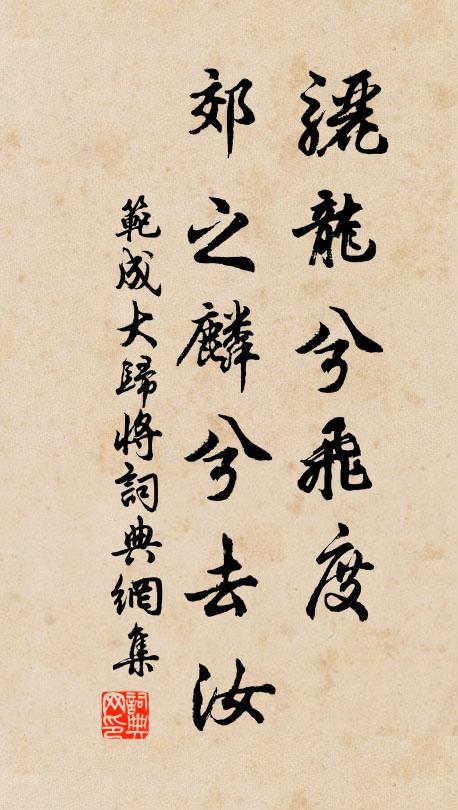 驪龍兮飛度
郊之麟兮去汝
範成大歸將詞典網集
詞典网印